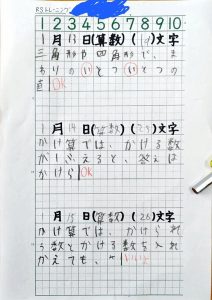 RSトレーニング
1 2 3 4 5 6 7 8 9 10
1月13日(算数)( )文字
三角形や四角形で、ま
わりの1つ1つの
直 OK
1月14日(算数)(25)文字
かけ算では、かける数
がふえると、答えは
かけら OK
1月15日(算数)(26)文字
かけ算では、かけられ
る数とかける数を入れ
かえても、 いいよ